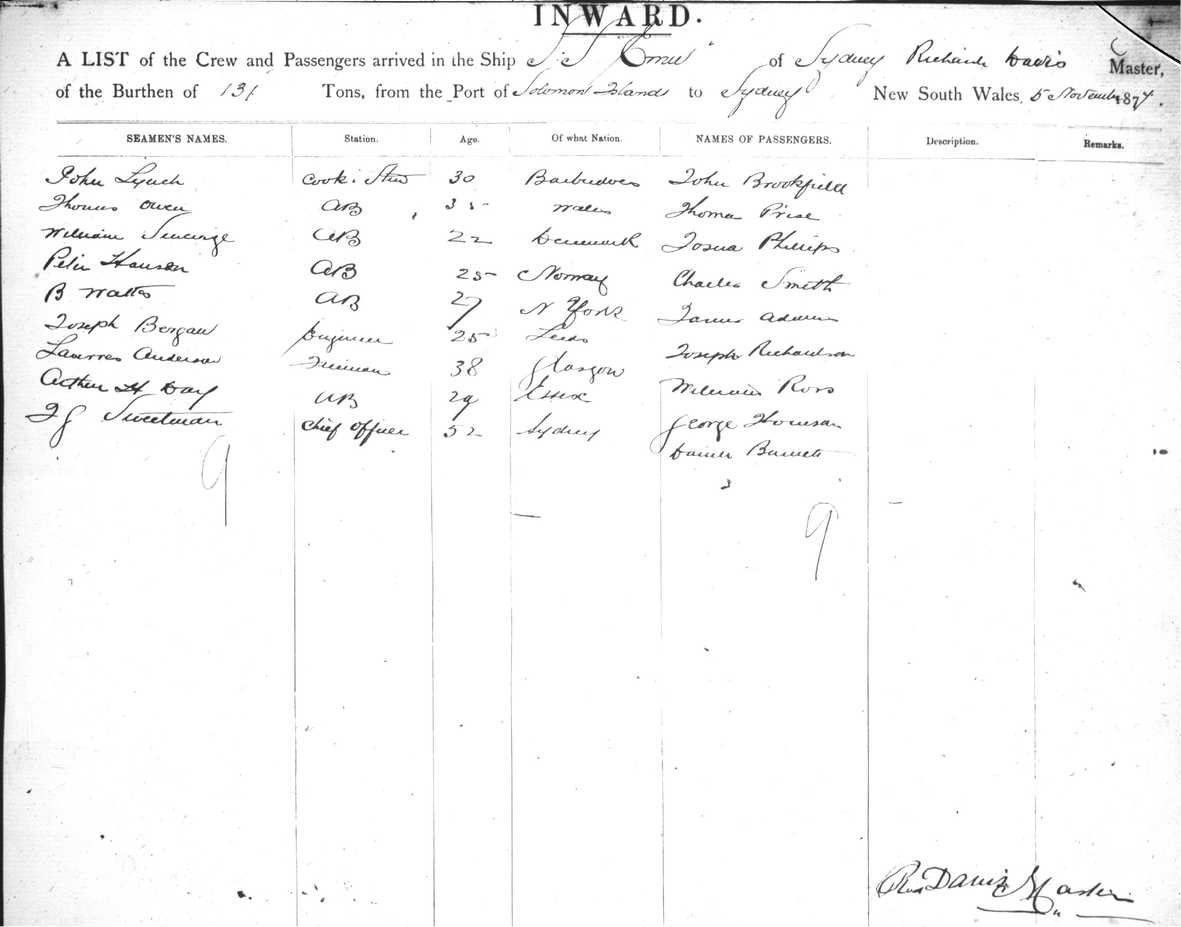 INWARD.
A LIST of the Crew and Passengers arrived in the Ship S. S. Emu of Sydney Richard Davis Master,
of the Burthen of 131 Tons, from the Port of Solomon Islands to Sydney New South Wales, 5 November 1874.
SEAMEN'S NAMES. Station. Age. Of what Nation. NAMES OF PASSENGERS. Description. Remarks.
John Lynch Cook. Stew 30 Barbedoes John Brookfield
Thomas Owen AB 35 Wales Thomas Prise
William AB 22 Denmark Josua Phillips
Peter Hansen AB 25 Norway Charles Smith
B Watts AB 27 N York James Adams
Joseph Bergan Engineer 25 Leeds Joseph Richardson
Anderson Fireman 38 Glasgow William Ross
Arthur H Day AB 29 Essex George Thomson
Sweetman Chief Officer 52 Sydney Daniel
9
9
Davis Master